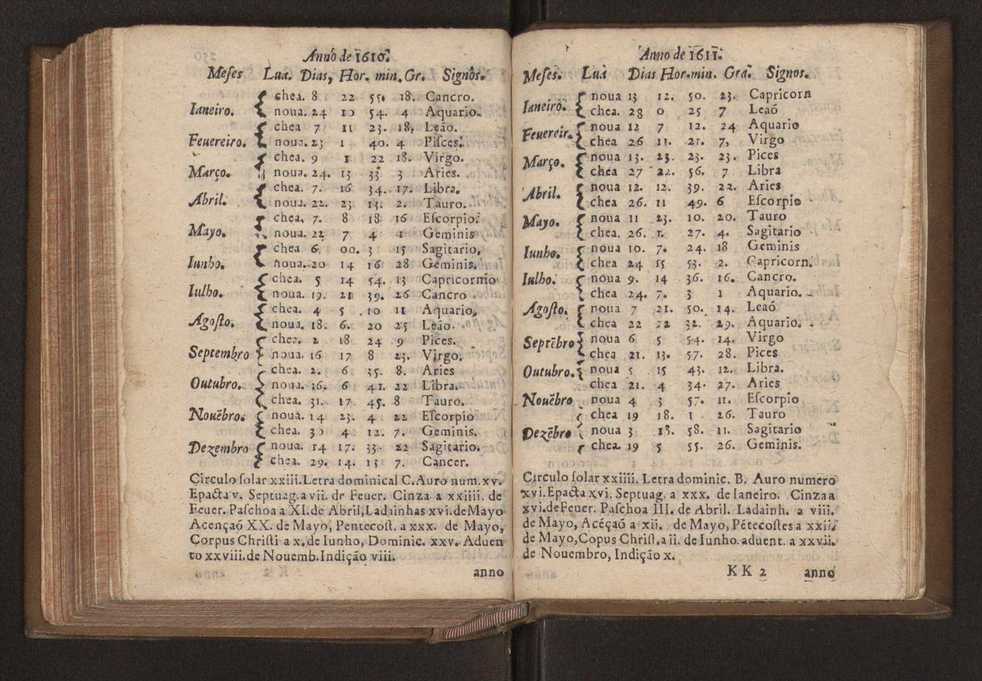 Anno de 1610.
Meses Lua. Dias, Hor. min. Gr. Signos.
Ianeiro. chea. 8 22 55. 18. Cancro.
noua. 24 10 54. 4 Aquario.
Feuereiro. chea 7 11 23. 18, Leão.
noua. 23 1 40. 4 Piſces.
Março. chea. 9 1 22 18. Virgo.
noua. 24. 13 33 3 Aries.
Abril. chea. 7. 16 34. 17. Libra.
noua. 22. 23 13. 2. Tauro.
Mayo. chea, 7. 8 18 16 Eſcorpio.
noua. 22 7 4 1 Geminis
Iunho. chea 6 00. 3 15 Sagitario,
noua. 20 14 16 28 Geminis.
Iulho. chea. 5 14 54. 13 Capricornio
noua. 19. 21 39. 26 Cancro
Agoſto. chea. 4 5 10 11 Aquario,
noua. 18. 6. 20 25 Leão.
Septembro chea. 2 18 24 9 Pices.
noua. 16 17 8 23. Virgo.
Outubro. chea. 2. 6 35. 8. Aries
noua. 16. 6 41. 22 Libra.
chea. 31. 17 45. 8 Tauro.
Nouẽbro. noua. 14 23. 4 22 Eſcorpio
chea. 30 4 12. 7. Geminis.
Dezembro noua. 14 17. 33 22 Sagitario.
chea. 29. 14. 13 7. Cancer.
Circulo ſolar xxiii. Letra dominical C. Auro num. xv.
Epacta v. Septuag. a vii. de Feuer. Cinza a xxiiii. de
Feuer. Paſchoa a XI. de Abril, Ladainhas xvi. de Mayo
Acençaõ XX. de Mayo, Pentecoſt. a xxx. de Mayo,
Corpus Chriſti a x. de Iunho, Dominic. xxv. Aduen
to xxviii. de Nouemb. Indição viii.
anno
Anno de 1611.
Meſes. Luà Dias Hor. min. Gra. Signos.
Ianeiro. noua 13 12. 50. 23. Capricorn
chea. 28 0 25 7 Leaó
Feuereir. noua 12 7 12. 24 Aquario
chea 26 11 21. 7, Virgo
Março. noua 13. 23. 23. 23. Pices
chea 27 22. 56. 7 Libra
Abril. noua 12. 12. 39. 22. Aries
chea 26. 11 49. 6 Eſcorpio
Mayo. noua 11 23. 10. 20. Tauro
chea. 26. 1. 27. 4. Sagitario
Iunho. noua 10. 7. 24. 18 Geminis
chea 24 15 53. 2. Capricorn.
Iulho. noua 9. 14 36. 16. Cancro.
chea 24. 7. 3 1 Aquario.
Agoſto. noua 7 21. 50. 14. Leaó
chea 22 22 32. 29. Aquario.
Septẽbro noua 6 5 54. 14. Virgo
chea 21. 13. 57. 28. Pices
Outubro. noua 5 15 43. 12. Libra.
chea 21. 4 34. 27. Aries
Nouẽbro noua 4 3 57. 11. Eſcorpio
chea 19 18. 1 26. Tauro
Dezẽbro noua 3 18. 58. 11. Sagitario
chea. 19 5 55. 26. Geminis.
Circulo ſolar xxiiii. Letra dominic. B. Auro numero
xvi. Epacta xvi. Septuag. a xxx. de Ianeiro. Cinza a
xvi. de Feuer. Paſchoa III. de Abril. Ladainh. a viii.
de Mayo, Acéçaõ a xii. de Mayo, Pẽtecoſtes a xxii.
de Mayo, Copus Chriſt. a ii. de Iunho. aduent. a xxvii.
de Nouembro, Indição x.
KK 2 anno